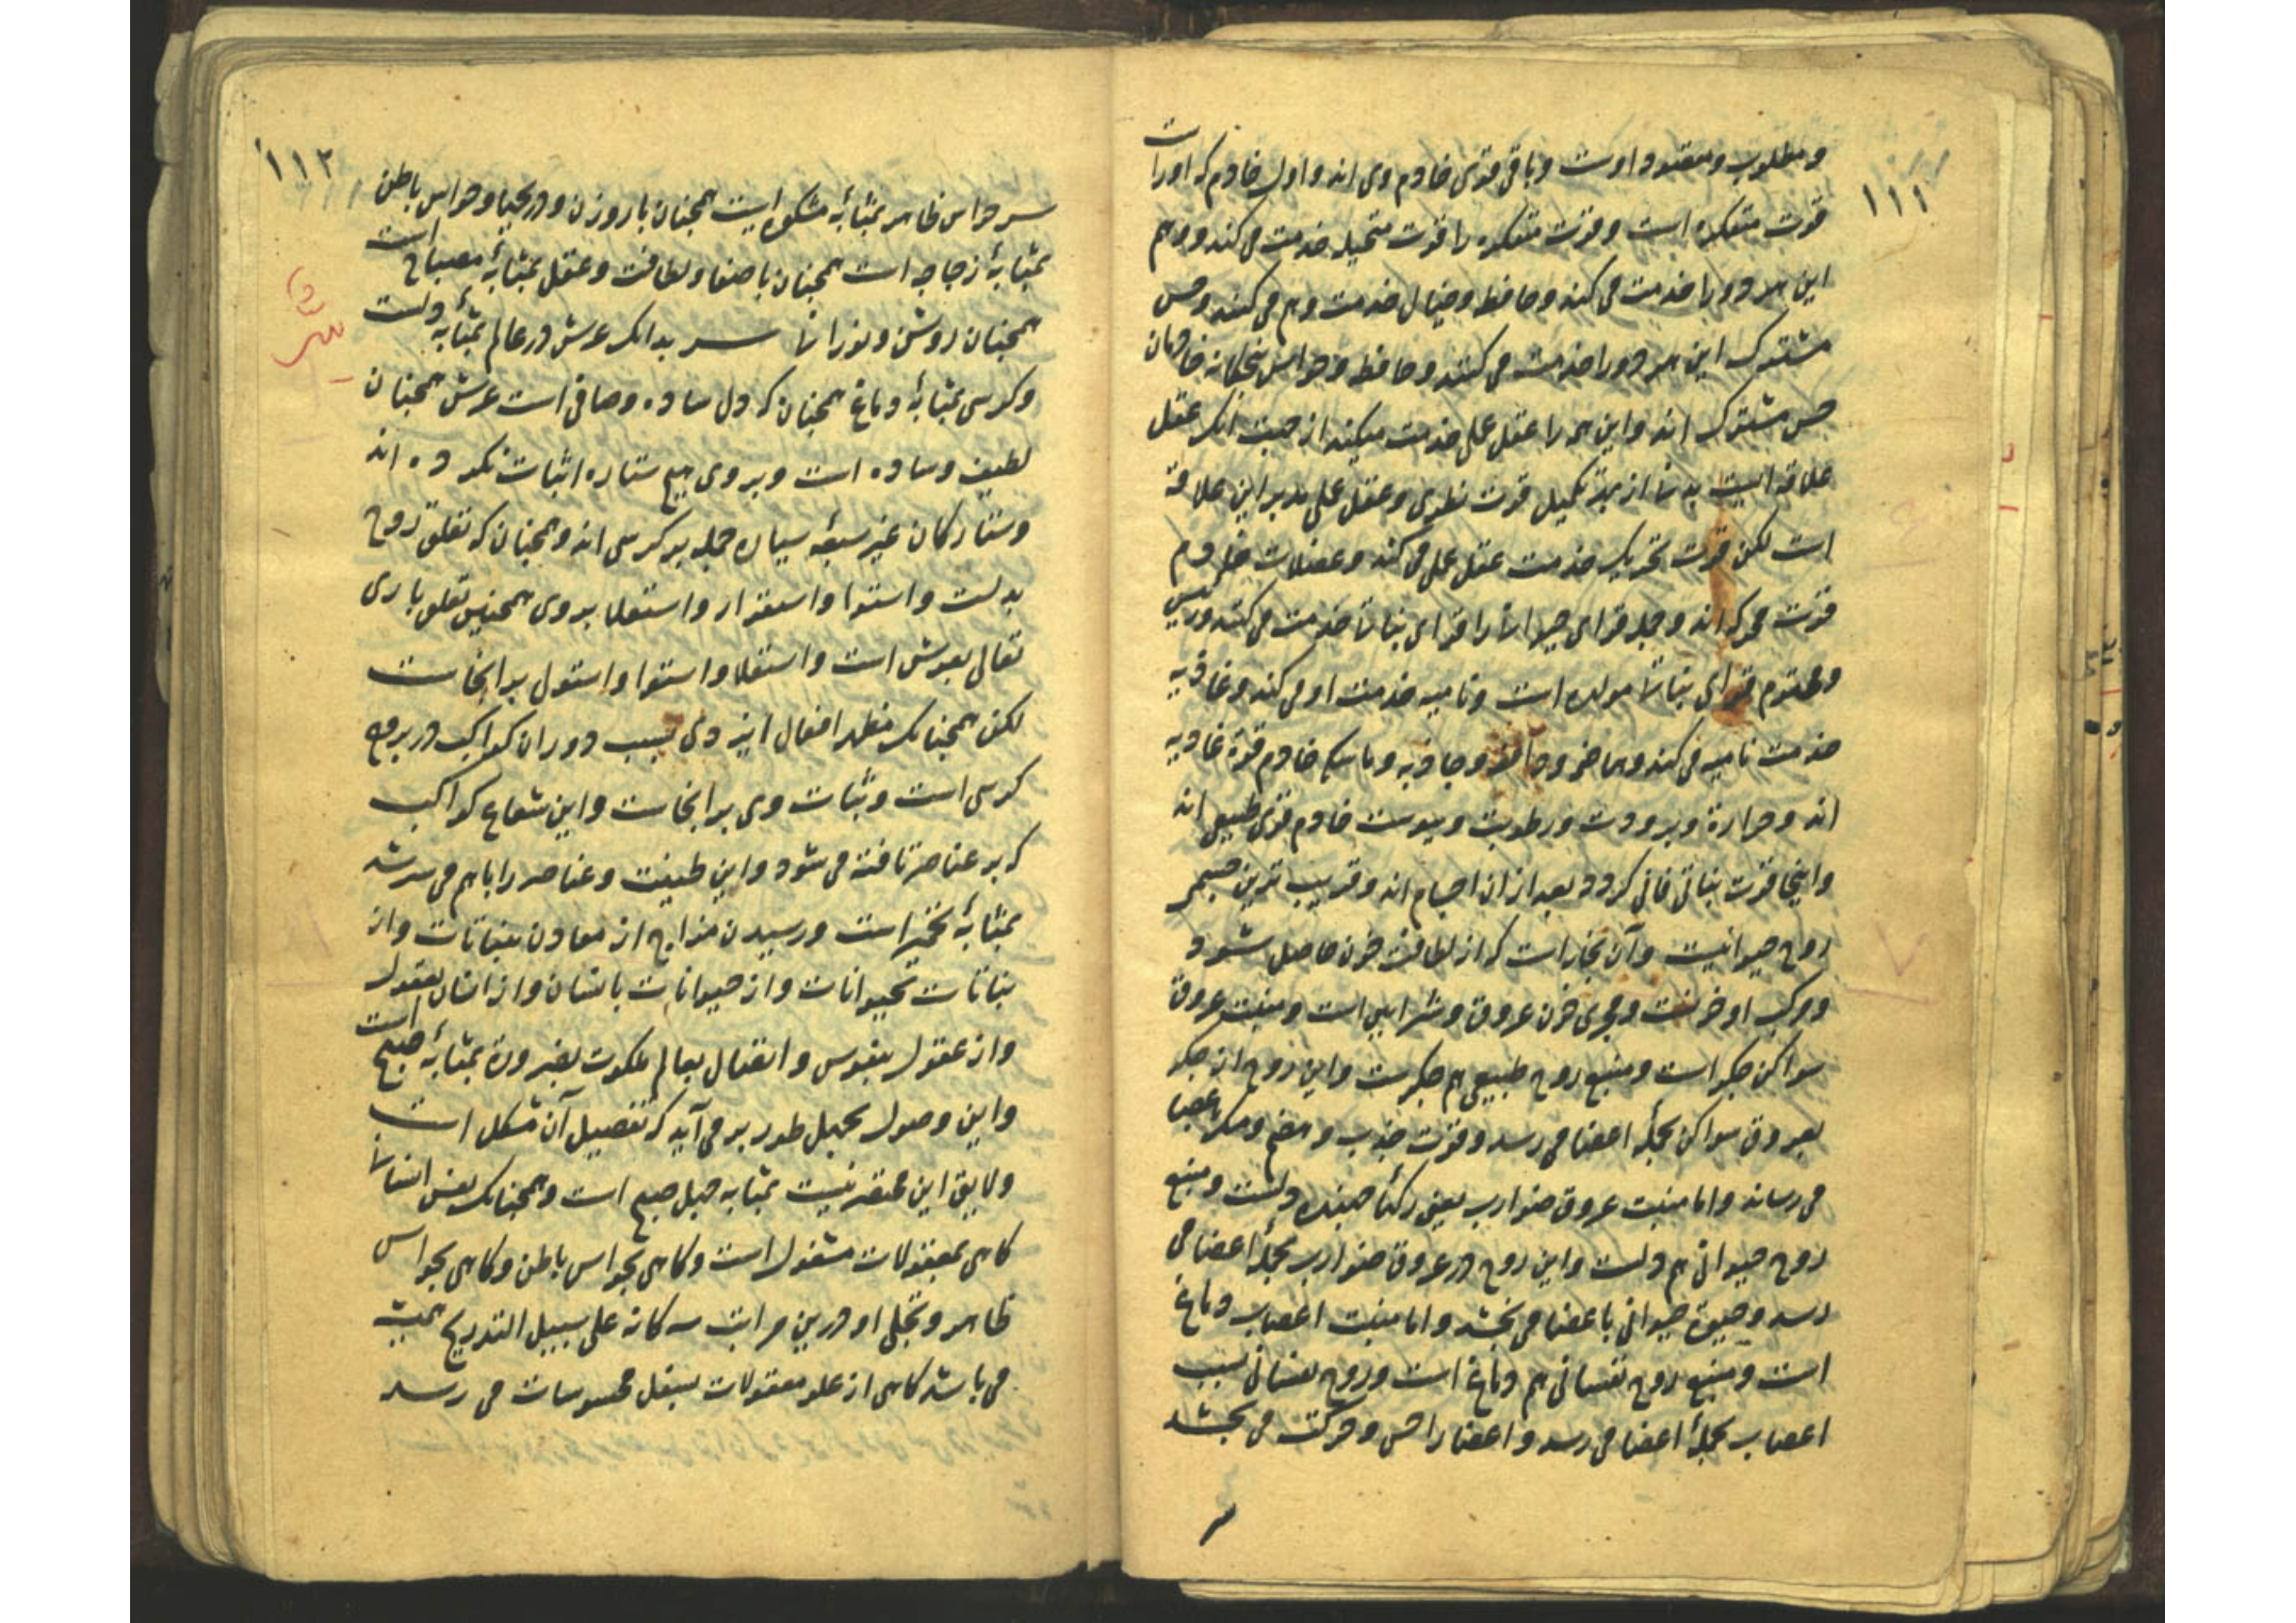 ۱۱۱
و مطلوب و مقصود اوست و باقی قوی خادم وی اند و اول خادم که اوراست
قوت متفکره است و قوت متفکره را قوت متخیله خدمت می کند و وهم
این هر دو را خدمت می کند و حافظ و خیال خدمت وهم می کنند و حس
مشترک این هر دو را خدمت می کند و حافظ و حواس پنجکانه خادمان
حس مشترک اند و این همه را عقل عملی خدمت میکند از جهت انک عقل
علاقه ایست بدنی از بهر تکمیل قوت نظری و عقل عملی مدبر این علاقه
است لکن قوت تحریک خدمت عقل عملی می کند و عضلات خادم
قوت محرکه اند و جمله قوای حیوانی را قوای نباتی خدمت می کند و رئیس
و مخدوم قوای نباتی مولده است و نامیه خدمت او می کند و غاذیه
خدمت نامیه می کند و هاضمه و دافعه و جاذبه و ماسکه خادم قوة غاذیه
اند و حرارة و برودت و رطوبت و یبوست خادم قوی طبیعی اند
و اینجا قوت نباتی فانی کردد بعد از ان اجسام اند و قریب ترین جسمی
روح حیوانیست و آن بخار است که از لطافت خون حاصل شود
و مرکب او خونست و مجری خون عروق و شرایین است و منبت عروق
سواکن جکر است و منبع روح طبیعی هم جکرست و این روح از جکر
بعروق سواکن بجملهٔ اعضا می رسد و قوت جذب و هضم و مسک باعضا
می رساند و اما منبت عروق ضوارب یعنی رکهأ جهنده دلست و منبع
روح حیوانی هم دلست و این روح در عروق ضوارب بجملهٔ اعضا می
رسد و حیوة حیوانی باعضا می بخشد و اما منبت اعصاب دماغ
است و منبع روح نفسانی هم دماغ است و روح نفسانی بسبب
اعصاب بجملهٔ اعضا می رسد و اعضا را حس و حرکت می بخشد
۱۱۲
سر حواس ظاهر بمثابهٔ مشکوه است همچنان با روزن و دریچها و حواس باطن
بمثابهٔ زجاجه است همچنان با صفا و لطافت و عقل بمثابهٔ مصباح است
همچنان روشن و نورانی سر بدانک عرش در عالم بمثابهٔ دلست
و کرسی بمثابهٔ دماغ همچنان که دل ساده و صافی است عرش همچنان
لطیف و ساده است و بر وی هیچ ستاره اثبات نکرده اند
و ستارکان غیر سبعهٔ سیاره جمله بر کرسی اند و همچنان که تعلق روح
بدلست و استوا و استقرار و استعلا بر وی همچنین تعلق باری
تعالی بعرش است و استعلا و استوا و استول بر انجاست
لکن همچنانک مظهر افعال ایزدی بسبب دوران کواکب در بروج
کرسی است و ثبات وی بر انجاست و این شعاع کواکب
که بر عناصر تافته می شود و این طینت و عناصر را باهم می سرشد
بمثابهٔ تخمیر است و رسیدن مزاج از معادن بنباتات و از
نباتات بحیوانات و از حیوانات بانسان و از انسان بعقول
و از عقول بنفوس و اتصال بعالم ملکوت بضرورة بمثابهٔ صبح است
و این وصول بحبل طور بر می آید که تفصیل آن مشکل است
و لایق این مختصر نیست بمثابه حبل صبح است و همچنانک نفس انسانی
کاهی بمعقولات مشغول است و کاهی بحواس باطن و کاهی بحواس
ظاهر و تجلی او درین مراتب سه کانه علی سبیل التدریج همیشه
می باشد کاهی از علو معقولات بسفل محسوسات می رسد